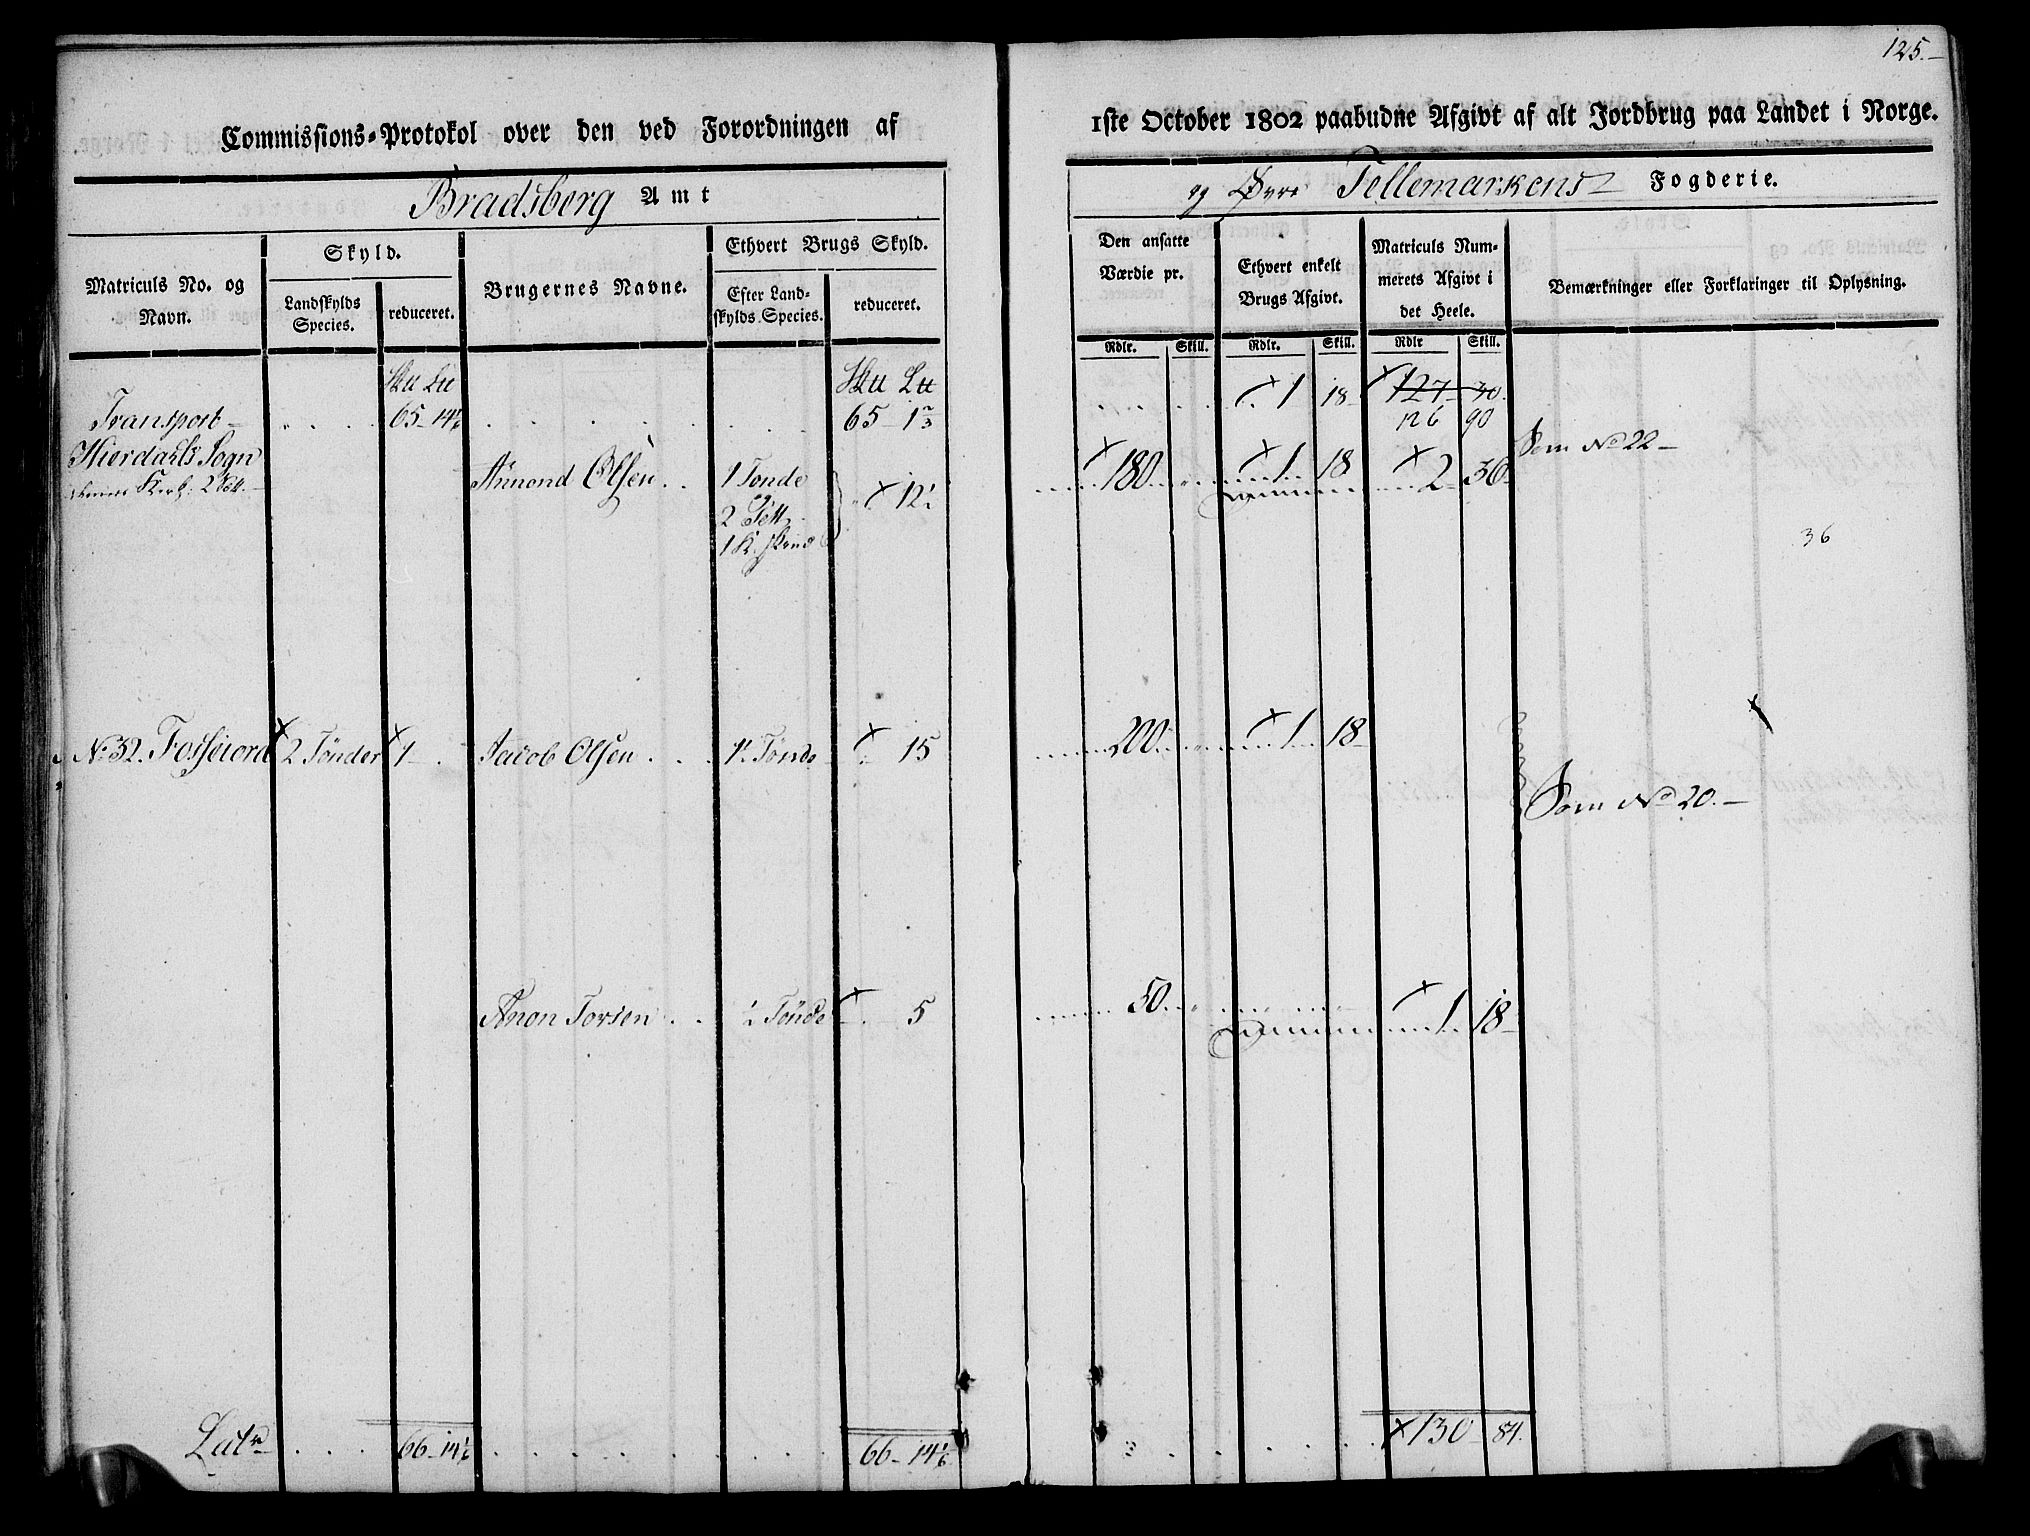 125.
Commissions-Protokol over den ved Forordningen af
1ste October 1802 paabudne Afgivt af alt Jordbrug paa Landet i Norge.
Bradsberg Amt
og Øvre Tellemarkens Fogderie.
Matriculs No. og Navn.
Skyld.
Landskylds Species.
reduceret.
Brugernes Navne.
Ethvert Brugs Skyld.
Efter Landskylds Species.
reduceret.
Den ansatte Værdie pr.
Rdlr. Skill.
Ethvert enkelt Brugs Afgivt.
Rdlr. Skill.
Matriculs Nummerets Afgivt i det Heele.
Rdlr Skill.
Bemærkninger eller Forklaringer til Oplysning.
Transport 65 14 65 1 2/3 1 18 127 30
126 90
Hierdahls Sogn
Kirk: 2 Sett. Amond Olsen 1 Tonde og 2 Sett 1 K. skind 12 1/2 180 1 18 2 36 Som No 22
36
No 32. Fosseiord 2 Tönder 1 Jacob Olsen 1 1/2 Tönde 15 200 1 18
Som No 20.
Anon Torsen 1/2 Tönde 5 50 1 18
Late 66 14 1/6 66 14 1/6 130 84.